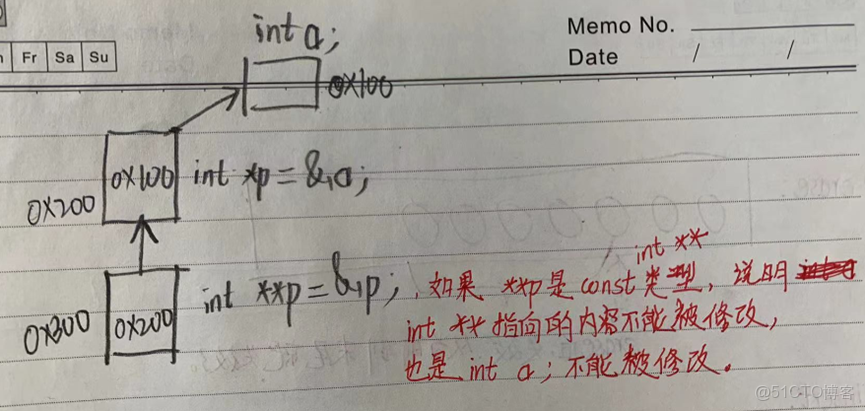 Memo No.
Date / /
Fr Sa Su
int a;
0X100
0X100 int *p = &a;
0X200
int **
0X200 int **p = &p; 如果 **p是 const 类型, 说明
0X300
int ** 指向的内容不能被修改,
也是 int a; 不能被修改。
@51CTO博客